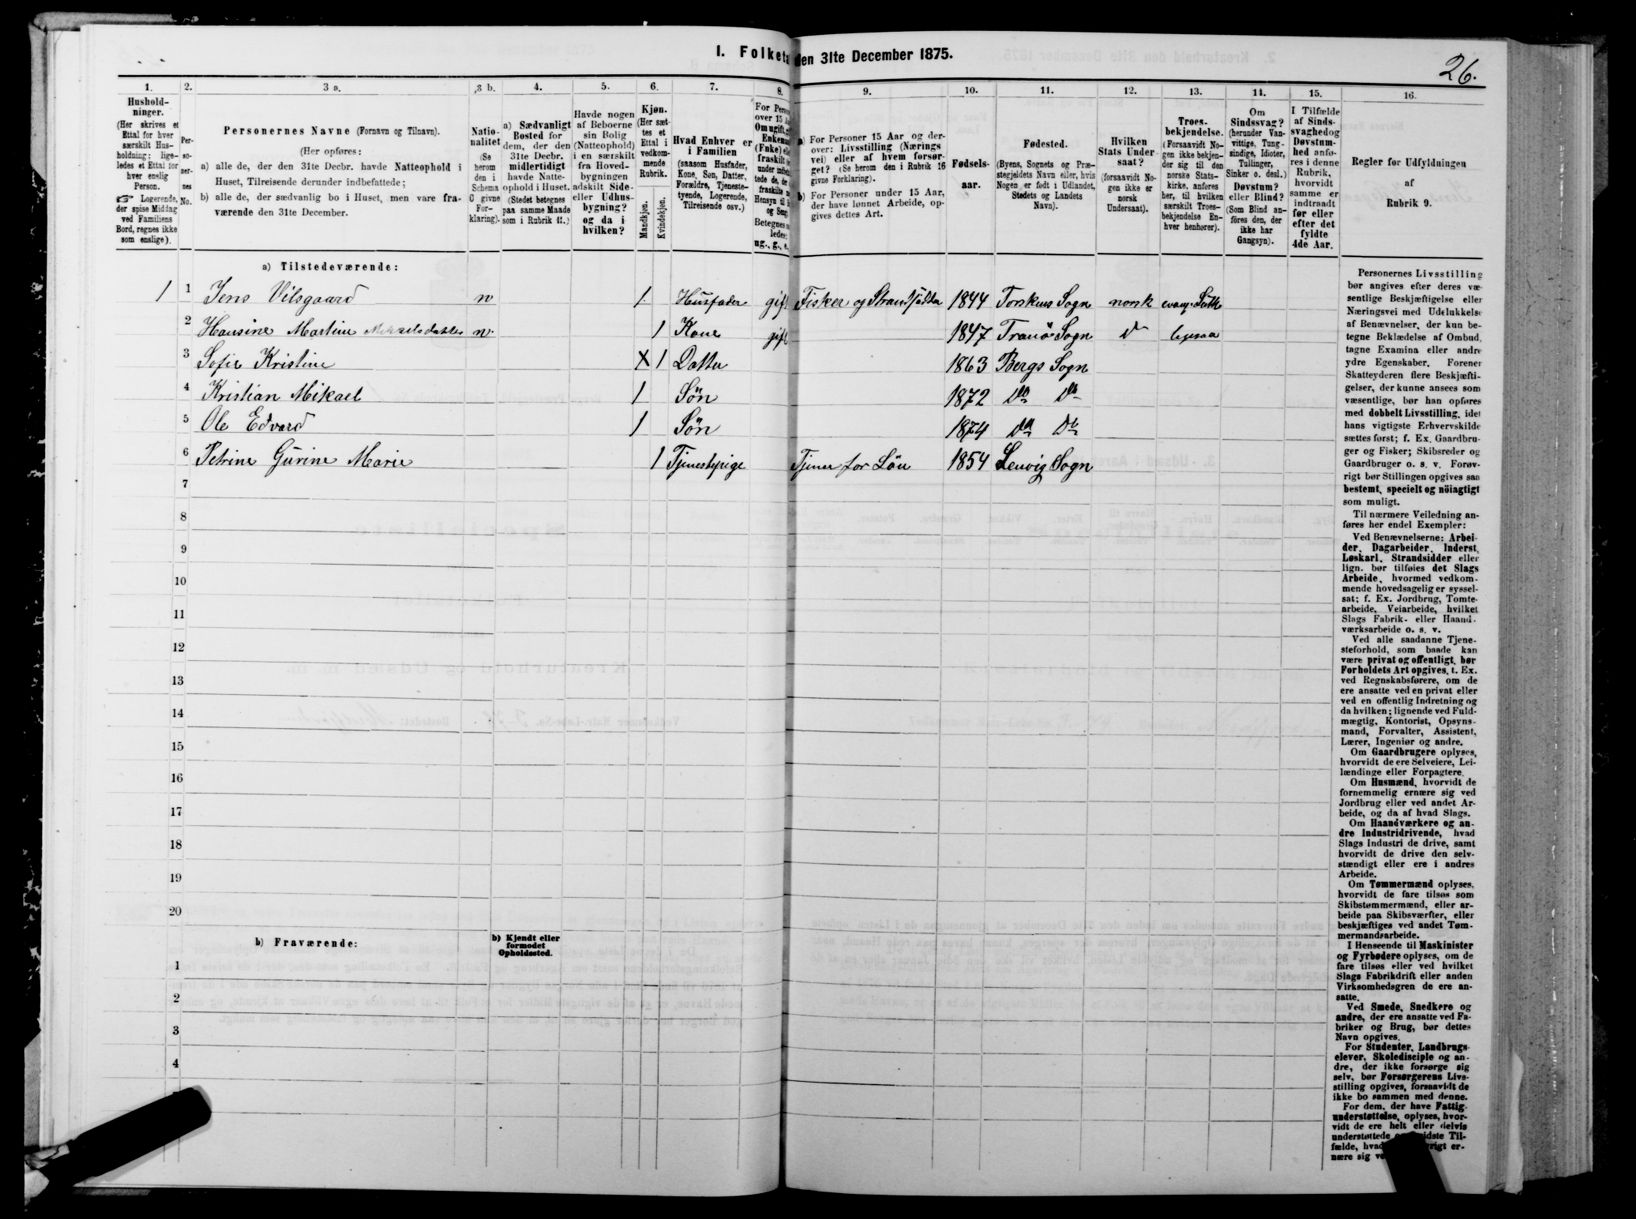 I. Folketa
den 31te December 1875.
26.
1.
2.
3 a.
3 b.
4.
5.
6.
7.
8.
9.
10.
11.
12.
13.
14.
15.
16.
Hushold-
ninger.
(Her skrives et
Ettal for hver
særskilt Hus-
holdning; lige-
ledes et Ettal for
hver enslig
Person.
☞ Logerende,
der spise Middag
ved Familiens
Bord, regnes ikke
som enslige).
Per-
so-
ner-
nes
No.
Personernes Navne (Fornavn og Tilnavn).
(Her opføres:
a) alle de, der den 31te Decbr. havde Natteophold i
Huset, Tilreisende derunder indbefattede;
b) alle de, der sædvanlig bo i Huset, men vare fra-
værende den 31te December.
Natio-
nalitet
(Se
herom
den i
Schema
C givne
For-
klaring).
a) Sædvanligt
Bosted for
dem, der den
31te Decbr.
midlertidigt
havde Natte-
ophold i Huset.
(Stedet betegnes
paa samme Maade
som i Rubrik 11.)
Havde nogen
af Beboerne
sin Bolig
(Natteophold)
i en særskilt
fra Hoved-
bygningen
adskilt Side-
eller Udhus-
bygning?
og da i
hvilken?
Kjøn.
(Her sæt-
tes et
Ettal i
vedkom-
mende
Rubrik.
Mandkjøn.
Kvindekjøn.
Hvad Enhver er
i Familien
(saasom Husfader,
Kone, Søn, Datter,
Forældre, Tjeneste-
tyende, Logerende,
Tilreisende osv.)
For Perso
over 15 Aa
Om ugift, g
Enkema
(Fnke) el
fraskilt
ug., g., e.
a) For Personer 15 Aar og der-
over: Livsstilling (Nærings
vei) eller af hvem forsør-
get? (Se herom den i Rubrik 16
givne Forklaring).
b) For Personer under 15 Aar,
der have lønnet Arbeide, op-
gives dettes Art.
Fødsels-
aar.
Fødested.
(Byens, Sognets og Præ-
stegjeldets Navn eller, hvis
Nogen er født i Udlandet,
Stedets og Landets
Navn).
Hvilken
Stats Under-
saat?
(forsaavidt No-
gen ikke er
norsk
Undersaat).
Troes-
bekjendelse.
(Forsaavidt No-
gen ikke bekjen-
der sig til den
norske Stats-
kirke, anføres
her, til hvilken
særskilt Troes-
bekjendelse En-
hver henhører).
Om
Sindssvag?
(herunder Van-
vittige, Tung-
sindige, Idioter,
Tullinger,
Sinker o. desl.)
Døvstum?
eller Blind?
(Som Blind an-
føres den, der
ikke har
Gangsyn).
I Tilfælde
af Sinds-
svaghed og
Døvstum-
hed anfø-
res i denne
Rubrik,
hvorvidt
samme er
indtraadt
før eller
efter det
fyldte
4de Aar.
Regler før Udfyldningen
af
Rubrik 9.
a) Tilstedeværende:
1 1 Jens Vilsgaard n 1 Husfader gif Fisker og Strandsidder 1844 Torskens Sogn norsk evang. Luth
2 Hansine Martine Mikaelsdatter n 1 Kone gif 1847 Tranø Sogn Do
3 Sofie Kristine X 1 Datter 1863 Bergs Sogn
4 Kristian Mikael 1 Søn 1872 Do Do
5 Ole Edvard 1 Søn 1874 Do Do
6 Petrine Gurine Marie 1 Tjenestepige Tjener for Løn 1854 Lenvig Sogn
7
8
9
10
11
12
13
14
15
16
17
18
19
20
b) Fraværende:
b) Kjendt eller
formodet
Opholdssted.
1
2
3
4
Personernes Livsstilling
bør angives efter deres væ-
sentlige Beskjæftigelse eller
Næringsvei med Udelukkelse
af Benævnelser, der kun be-
tegne Beklædelse af Ombud,
tagne Examina eller andre
ydre Egenskaber. Forener
Skatteyderen flere Beskjæfti-
gelser, der kunne ansees som
væsentlige, bør han opføres
med dobbelt Livsstilling, idet
hans vigtigste Erhvervskilde
sættes først; f. Ex. Gaardbru-
ger og Fisker; Skibsreder og
Gaardbruger o. s. v. Forøv-
rigt bør Stillingen opgives saa
bestemt, specielt og nöiagtigt
som muligt.
Til nærmere Veiledning an-
føres her endel Exempler:
Ved Benævnelserne: Arbei-
der, Dagarbeider, Inderst,
Løskarl, Strandsidder eller
lign. bør tilføies det Slags
Arbeide, hvormed vedkom-
mende hovedsagelig er syssel-
sat; f. Ex. Jordbrug, Tomte-
arbeide, Veiarbeide, hvilket
Slags Fabrik- eller Haand-
værksarbeide o. s. v.
Ved alle saadanne Tjene-
steforhold, som baade kan
være privat og offentligt, bør
Forholdets Art opgives, t. Ex.
ved Regnskabsførere, om de
ere ansatte ved en privat eller
ved en offentlig Indretning og
da hvilken; lignende ved Fuld-
mægtig, Kontorist, Opsyns-
mand, Forvalter, Assistent,
Lærer, Ingeniør og andre.
Om Gaardbrugere oplyses,
hvorvidt de ere Selveiere, Lei-
lændinge eller Forpagtere.
Om Husmænd, hvorvidt de
fornemmelig ernære sig ved
Jordbrug eller ved andet Ar-
beide, og da af hvad Slags.
Om Haandværkere og an-
dre Industridrivende, hvad
Slags Industri de drive, samt
hvorvidt de drive den selv-
stændigt eller ere i andres
Arbeide.
Om Tømmermænd oplyses,
hvorvidt de fare tilsøs som
Skibstømmermænd, eller ar-
beide paa Skibsværfter, eller
beskjæftiges ved andet Tøm-
mermandsarbeide.
I Henseende til Maskinister
og Fyrbødere oplyses, om de
fare tilsøs eller ved hvilket
Slags Fabrikdrift eller anden
Virksomhedsgren de ere an-
satte.
Ved Smede, Snedkere og
andre, der ere ansatte ved Fa-
briker og Brug, bør dettes
Navn opgives.
For Studenter, Landbrugs-
elever, Skoledisciple og an-
dre, der ikke forsørge sig
selv, bør Forsørgerens Livs-
stilling opgives, forsaavidt de
ikke bo sammen med denne.
For dem, der have Fattig-
understøttelse, oplyses, hvor-
vidt de ere helt eller delvis
understøttede